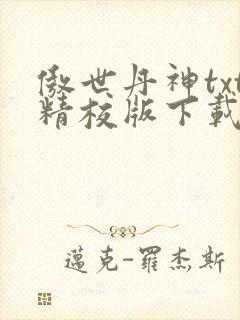 傲世丹神txt
精校版下載
邁克-羅杰斯